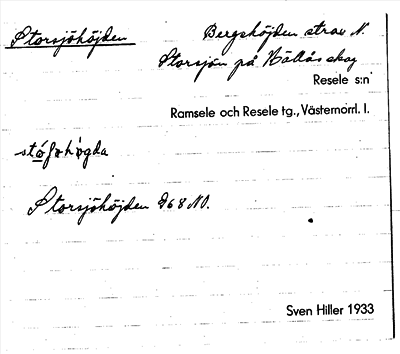 Storsjöhöjden
Bergshöjden strax N.
Storsjön på Hällås skog
Resele s:n
Ramsele och Resele tg., Västernorrl. l.
Storsjöhöjden 268 NO.
Sven Hiller 1933